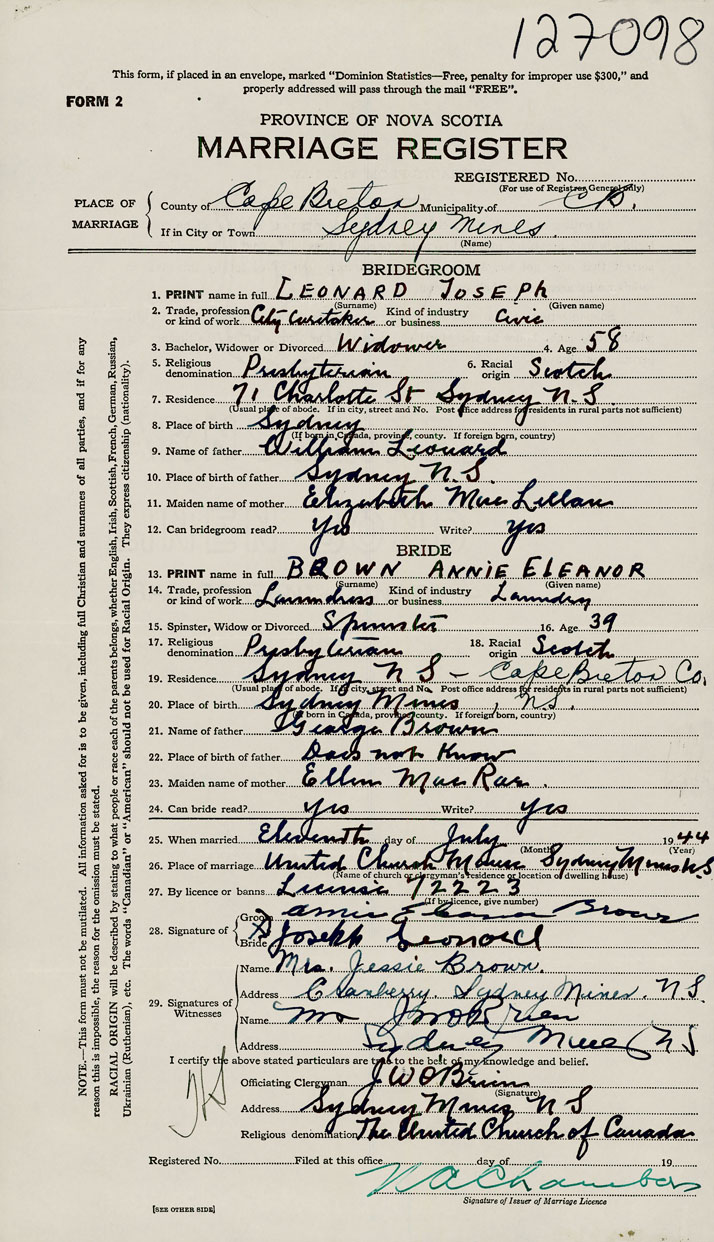 127098
This form, if placed in an envelope, marked "Dominion Statistics—Free, penalty for improper use $300," and
properly addressed will pass through the mail "FREE".
FORM 2
PROVINCE OF NOVA SCOTIA
MARRIAGE REGISTER
REGISTERED No.
(For use of Registrar General only)
PLACE OF MARRIAGE
County of Cape Breton Municipality of C B.
If in City or Town Sydney Mines.
(Name)
BRIDEGROOM
1. PRINT name in full LEONARD JOSEPH
(Surname) (Given name)
2. Trade, profession or kind of work City Caretaker Kind of industry or business Civic
3. Bachelor, Widower or Divorced Widower 4. Age 58
5. Religious denomination Presbyterian 6. Racial origin Scotch
7. Residence 71 Charlotte St Sydney N.S.
(Usual place of abode. If in city, street and No. Post office address for residents in rural parts not sufficient)
8. Place of birth Sydney
(If born in Canada, province, county. If foreign born, country)
9. Name of father William Leonard
10. Place of birth of father Sydney N.S.
11. Maiden name of mother Elizabeth Mac Lellan
12. Can bridegroom read? Yes Write? yes
BRIDE
13. PRINT name in full BROWN ANNIE ELEANOR
(Surname) (Given name)
14. Trade, profession or kind of work Laundress Kind of industry or business Laundry
15. Spinster, Widow or Divorced Spinster 16. Age 39
17. Religious denomination Presbyterian 18. Racial origin Scotch
19. Residence Sydney N S - Cape Breton Co.
(Usual place of abode. If in city, street and No. Post office address for residents in rural parts not sufficient)
20. Place of birth Sydney Mines, N.S.
(If born in Canada, province, county. If foreign born, country)
21. Name of father George Brown
22. Place of birth of father Does not Know
23. Maiden name of mother Ellen Mac Rae.
24. Can bride read? yes Write? yes
25. When married Eleventh day of July 1944
(Month) (Year)
26. Place of marriage United Church Manse Sydney Mines NS
(Name of church or clergyman's residence or location of dwelling house)
27. By licence or banns License 72223
(If by licence, give number)
28. Signature of
Groom Annie Eleanor Brown
Bride Joseph Leonard
29. Signatures of Witnesses
Name Mrs. Jessie Brown.
Address Cranberry. Sydney Mines. N.S.
Name Mrs J W O Brien
Address Sydney Mines N S
I certify the above stated particulars are true to the best of my knowledge and belief.
Officiating Clergyman J W O Brien
(Signature)
Address Sydney Mines N S
Religious denomination The United Church of Canada
Registered No. Filed at this office day of 19
Chambers
Signature of Issuer of Marriage Licence
[SEE OTHER SIDE]
NOTE.—This form must not be mutilated. All information asked for is to be given, including full Christian and surnames of all parties, and if for any
reason this is impossible, the reason for the omission must be stated.
RACIAL ORIGIN will be described by stating to what people or race each of the parents belongs, whether English, Irish, Scottish, French, German, Russian,
Ukrainian (Ruthenian), etc. The words "Canadian" or "American" should not be used for Racial Origin. They express citizenship (nationality).